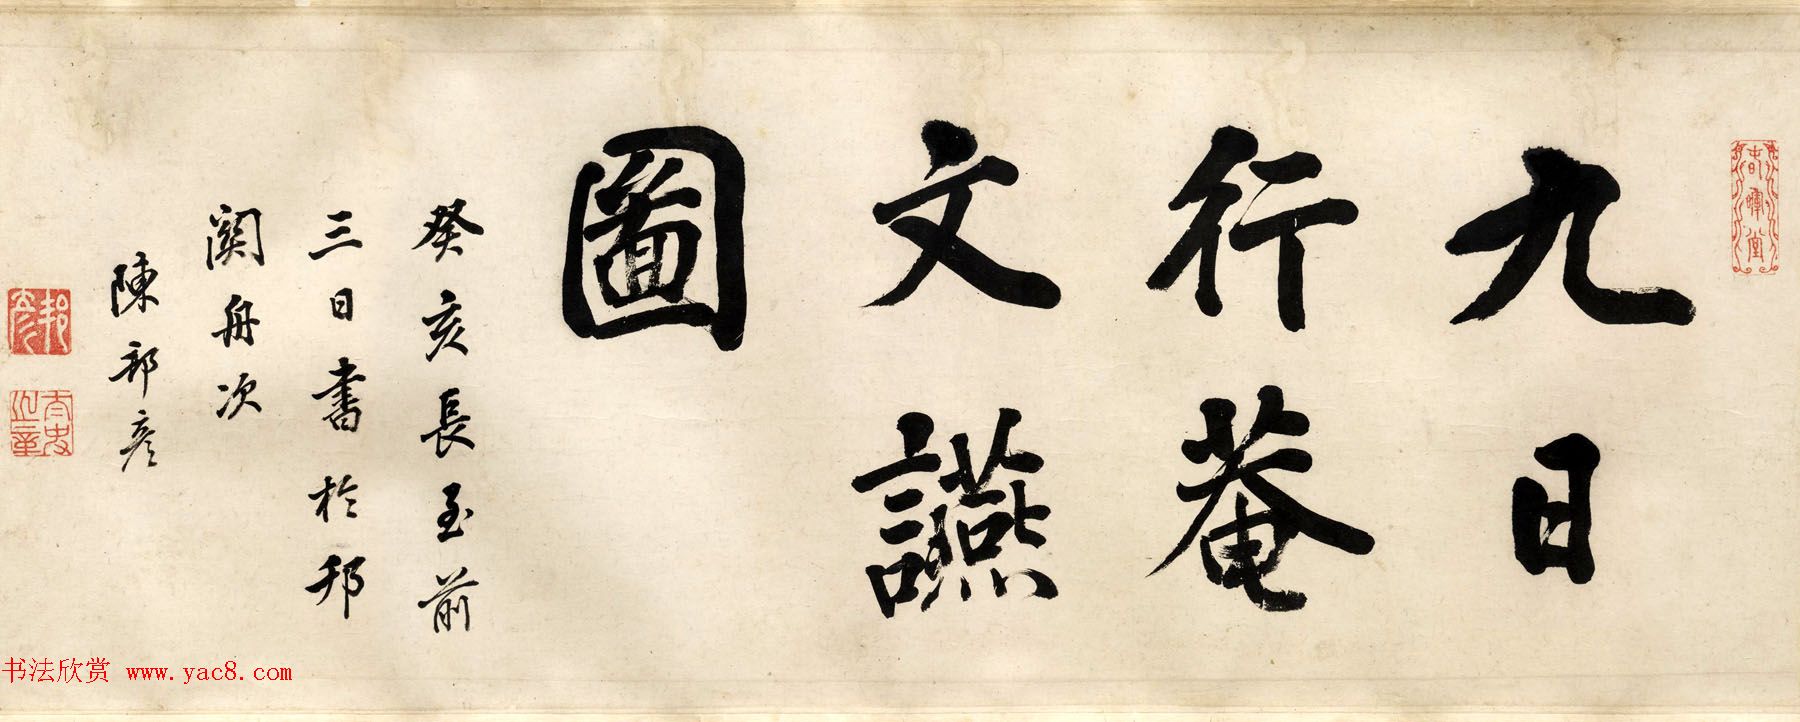 九日
行菴
文讌
圖
癸亥長至前
三日書於邗
關舟次
陳邦彥
春暉堂
邦彥
書法欣赏 www.yac8.com